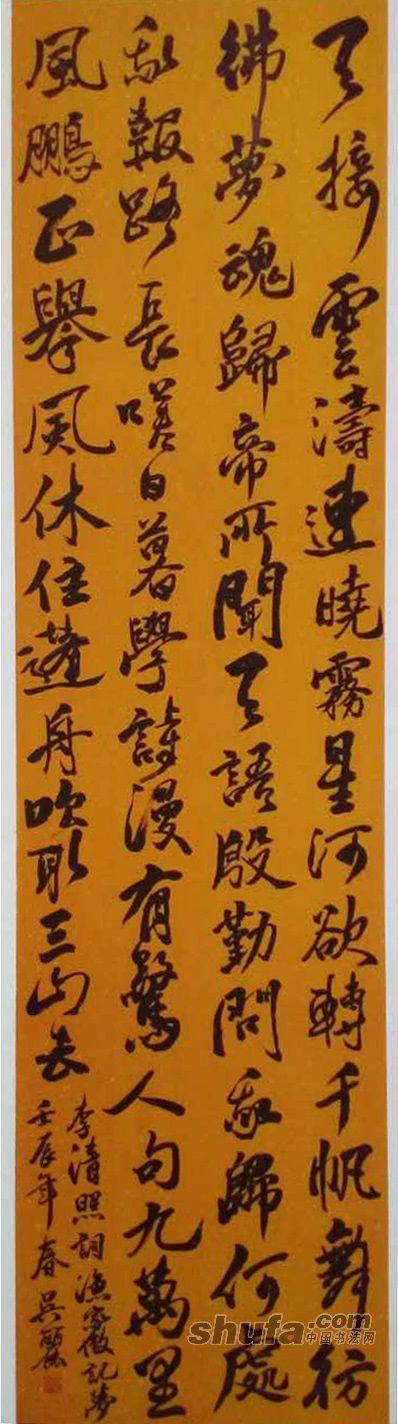 天接雲濤連曉霧星河欲轉千帆舞彷
彿夢魂歸帝所聞天語殷勤問我歸何處
我報路長嗟日暮學詩漫有驚人句九萬里
風鵬正舉風休住蓬舟吹取三山去
李清照詞漁家傲記夢
壬辰年春吳麗
shufa.com
中国书法网